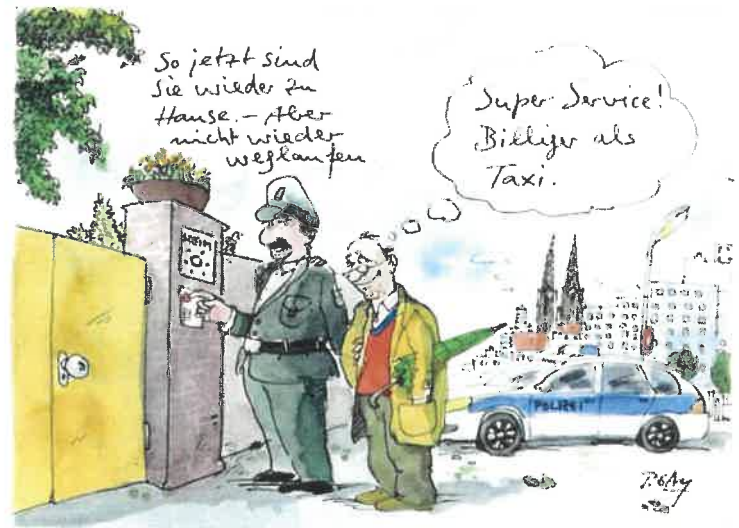 So jetzt sind
Sie wieder zu
Hause. – Aber
nicht wieder
weglaufen
Super Service!
Billiger als
Taxi.
HEIM
POLIZEI